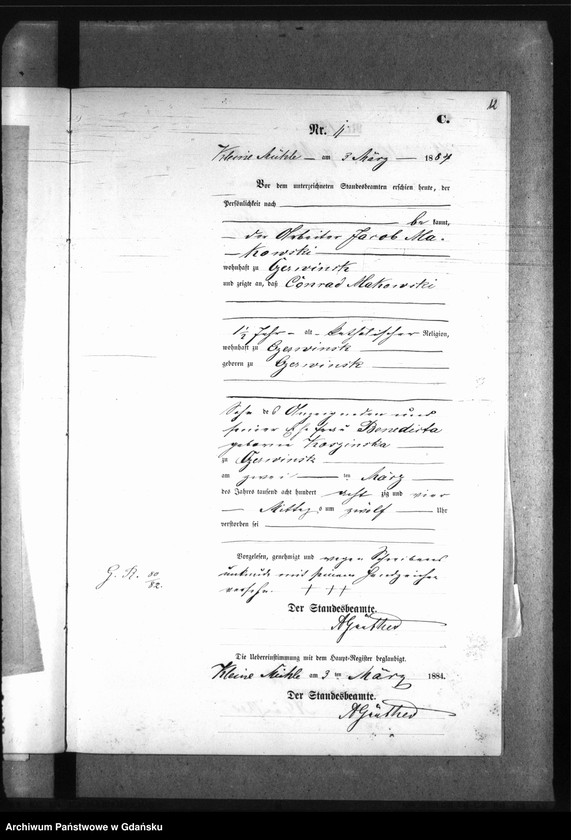 12
C.
Nr. 4
Kleine Mühle am 3 März 1884
Vor dem unterzeichneten Standesbeamten erschien heute, der
Persönlichkeit nach
be kannt,
der Arbeiter Jacob Ma-
kowski
wohnhaft zu Czerwinsk
und zeigte an, daß Conrad Makowski
1½ Jahr alt katholischer Religion,
wohnhaft zu Czerwinsk
geboren zu Czerwinsk
Sohn des Anzeigenden und
seiner Ehefrau Benedicta
geborene Koszinska
zu Czerwinsk
am zwei ten März
des Jahres tausend acht hundert acht zig und vier
Mittags um zwölf Uhr
verstorben sei
Vorgelesen, genehmigt und wegen Schreibens
unkunde mit seinem Handzeichen
versehn. +++
G. R. 80/82.
Der Standesbeamte.
AGüther
Die Uebereinstimmung mit dem Haupt-Register beglaubigt.
Kleine Mühle am 3 ten März 1884.
Der Standesbeamte.
AGüther
Archiwum Państwowe w Gdańsku